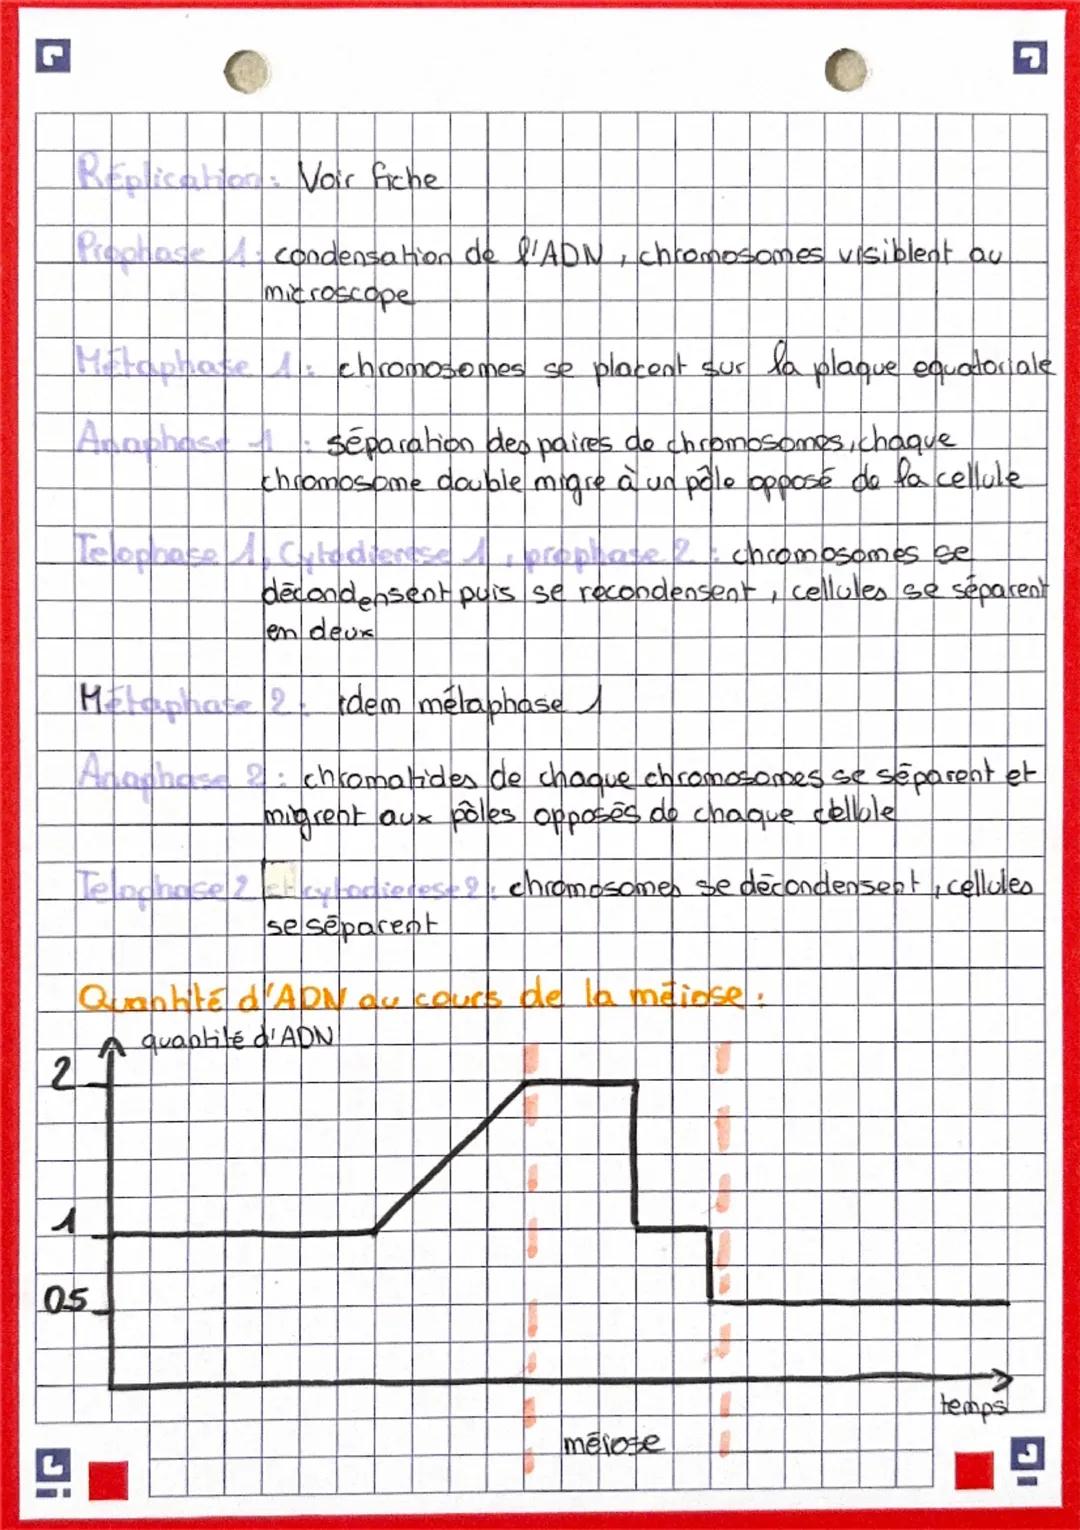 Réplication : Voir fiche
Prophase 1 : condensation de l'ADN, chromosomes visiblent au
microscope
Métaphase 1 : chromosomes se placent sur la plaque equatoriale
Anaphase 1 : séparation des paires de chromosomes, chaque
chromosome double migre à un pôle opposé de la cellule
Telophase 1, Cytodierese 1, prophase 2 : chromosomes se
décondensent puis se recondensent, cellules se séparent
en deux
Métaphase 2 : idem métaphase 1
Anaphase 2 : chromatides de chaque chromosomes se séparent et
migrent aux pôles opposés de chaque cellule
Telophase 2 et cytodierese 2 : chromosomes se décondensent, cellules
se séparent
Quantité d'ADN au cours de la méiose :
quantité d'ADN
2
1
05
temps
méiose